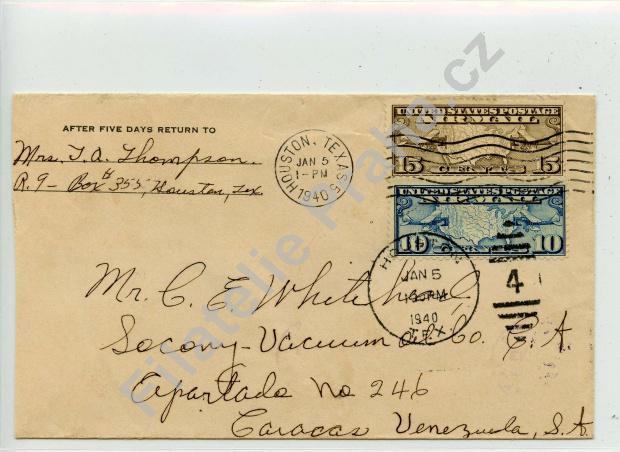 AFTER FIVE DAYS RETURN TO
Mrs. T. A. Thompson.
R. 9 - Box # 355, Houston, Tex
HOUSTON, TEXAS
JAN 5
1-PM
1940
UNITED STATES POSTAGE
AIR MAIL
15 CENTS 15
UNITED STATES POSTAGE
AIR MAIL
10
JAN 5
PM
1940
TEX
4
Mr. C. E. Whitehead
Socony-Vacuum Oil Co. C. A.
Apartado No 246
Caracas Venezuela, S.A.
Filatelie Praha.cz